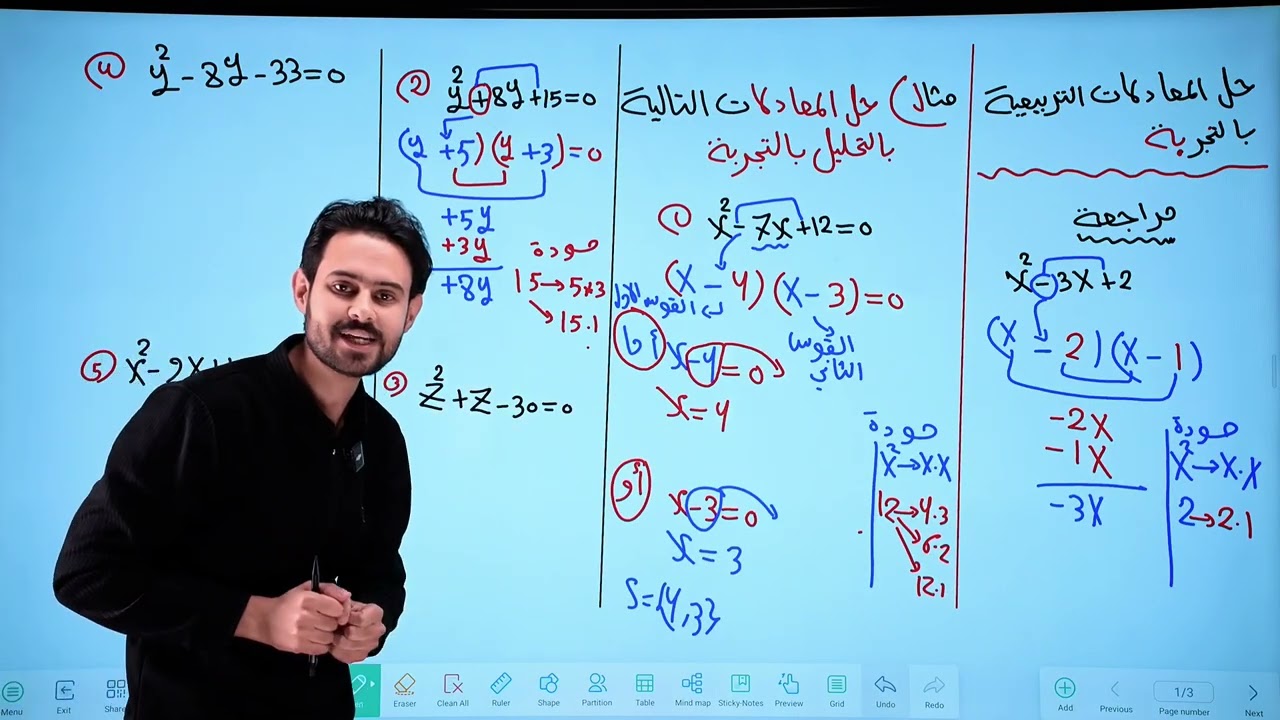 حل المعادلات التربيعية
بالتجربة
مراجعة
x² - 3x + 2
(x - 2)(x - 1)
-2x
-1x
-3x
مسودة
x² → x.x
2 → 2.1
مثال) حل المعادلات التالية
بالتحليل بالتجربة
1) x² - 7x + 12 = 0
(x - 4)(x - 3) = 0
القوس الاول
القوس
الثاني
أما
x - 4 = 0
x = 4
أو
x - 3 = 0
x = 3
S = {4, 3}
مسودة
x² → x.x
12 → 4.3
6.2
12.1
2) y² + 8y + 15 = 0
(y + 5)(y + 3) = 0
+5y
+3y
+8y
مسودة
15 → 5*3
15.1
3) z² + z - 30 = 0
4) y² - 8y - 33 = 0
5) x² - 2x +
Menu
Exit
Eraser
Clean All
Ruler
Shape
Partition
Table
Mind map
Sticky-Notes
Preview
Grid
Undo
Redo
Add
Previous
1/3
Page number
Next